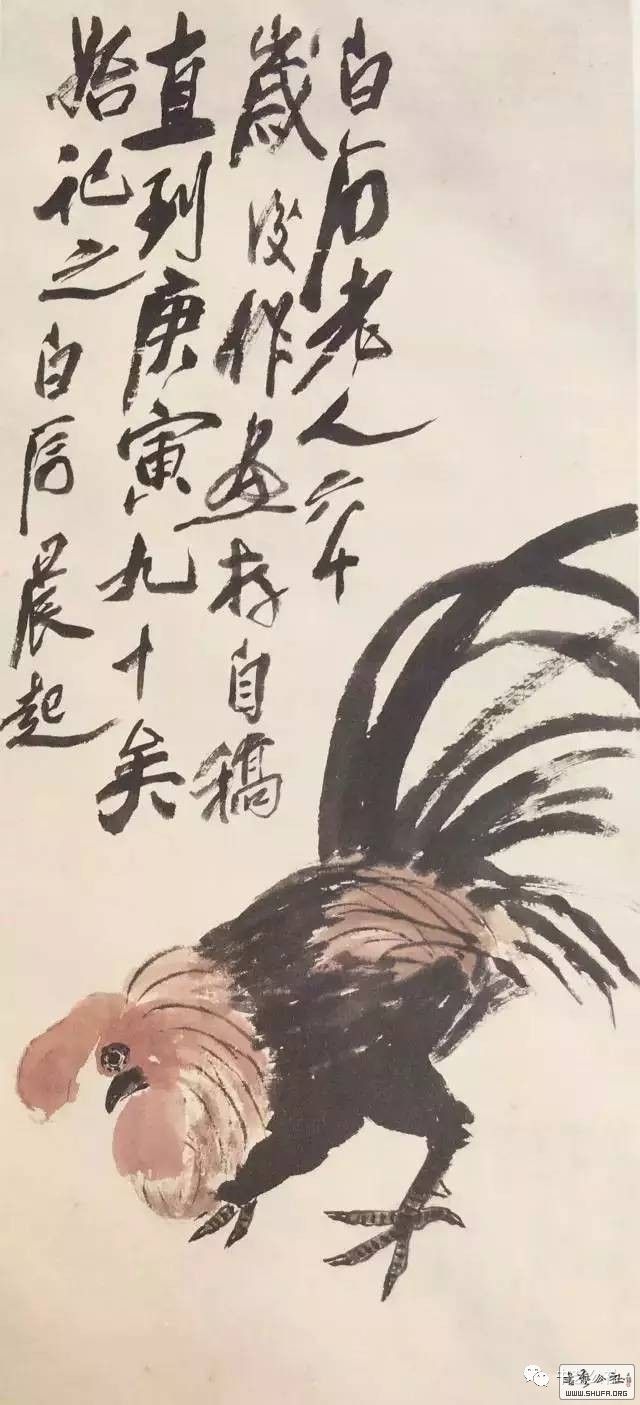 白石老人六十
歲後作畫存自稿
直到庚寅九十矣
始記之白石晨起
WWW.SHUFA.ORG